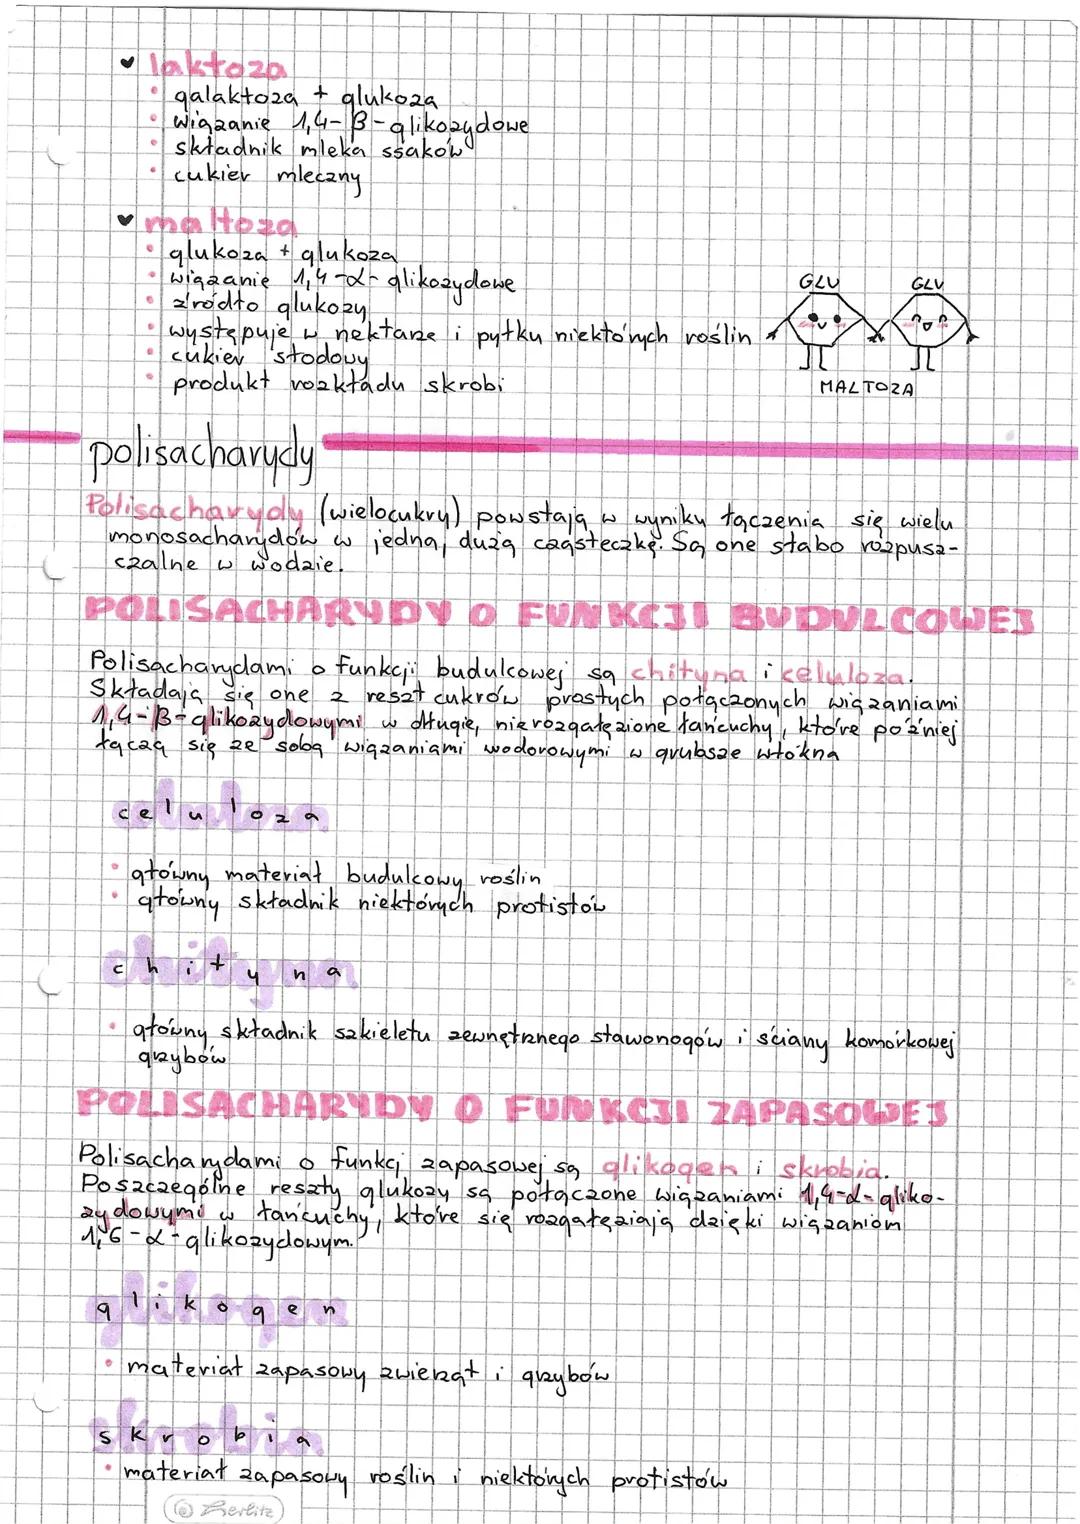 laktoza
galaktoza + glukoza
wiązanie 1,4-β-glikozydowe
składnik mleka ssaków
cukier mleczny
maltoza
glukoza + glukoza
wiązanie 1,4-α-glikozydowe
źródło glukozy
występuje w nektarze i pyłku niektórych roślin
cukier słodowy
produkt rozkładu skrobi
GLU GLU
MALTOZA
polisacharydy
Polisacharydy (wielocukry) powstają w wyniku łączenia się wielu
monosacharydów w jedną, dużą cząsteczkę. Są one słabo rozpusz-
czalne w wodzie.
POLISACHARYDY O FUNKCJI BUDULCOWEJ
Polisacharydami o funkcji budulcowej są chityna i celuloza.
Składają się one z reszt cukrów prostych połączonych wiązaniami
1,4-β-glikozydowymi w długie, nierozgałęzione łańcuchy, które później
łączą się ze sobą wiązaniami wodorowymi w grubsze włókna
celuloza
główny materiał budulcowy roślin
główny składnik niektórych protistów
chityna
główny składnik szkieletu zewnętrznego stawonogów i ściany komórkowej
grzybów
POLISACHARYDY O FUNKCJI ZAPASOWEJ
Polisacharydami o funkcj zapasowej są glikogen i skrobia.
Poszczególne reszty glukozy są połączone wiązaniami 1,4-α-gliko-
zydowymi w łańcuchy, które się rozgałęziają dzięki wiązaniom
1,6-α-glikozydowym.
glikogen
materiał zapasowy zwierząt i grzybów
skrobia
materiał zapasowy roślin i niektórych protistów
Herlitz